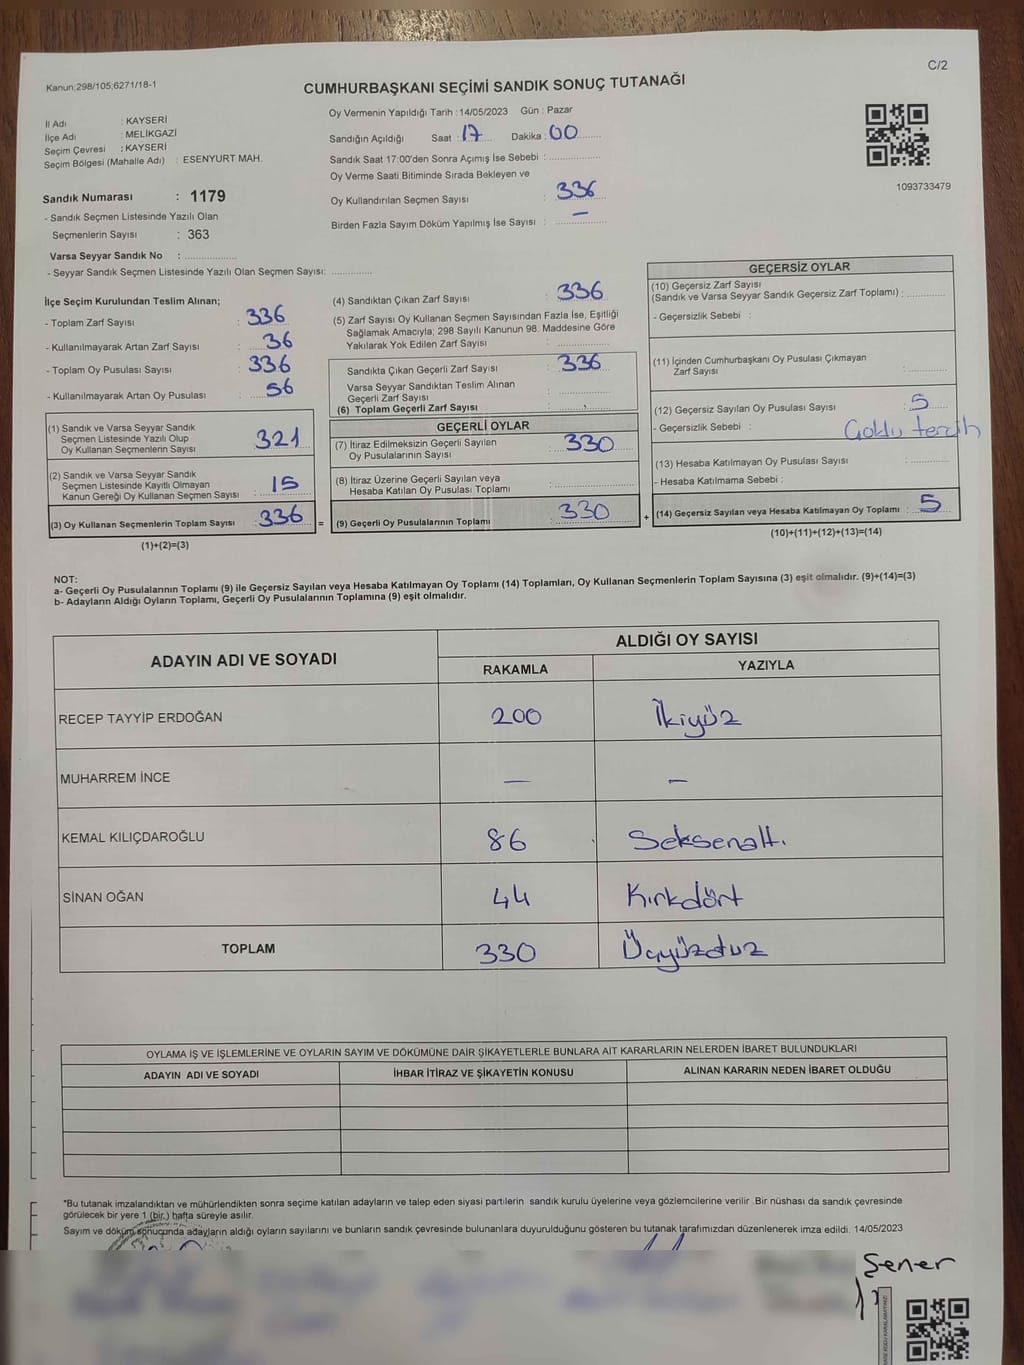 Kanun;298/105;6271/18-1
C/2
CUMHURBAŞKANI SEÇİMİ SANDIK SONUÇ TUTANAĞI
İl Adı : KAYSERİ
İlçe Adı : MELİKGAZİ
Seçim Çevresi : KAYSERİ
Seçim Bölgesi (Mahalle Adı) : ESENYURT MAH.
Sandık Numarası : 1179
- Sandık Seçmen Listesinde Yazılı Olan
Seçmenlerin Sayısı : 363
Varsa Seyyar Sandık No :
- Seyyar Sandık Seçmen Listesinde Yazılı Olan Seçmen Sayısı:
Oy Vermenin Yapıldığı Tarih : 14/05/2023 Gün : Pazar
Sandığın Açıldığı Saat : 17 Dakika : 00
Sandık Saat 17:00'den Sonra Açımış İse Sebebi :
Oy Verme Saati Bitiminde Sırada Bekleyen ve
Oy Kullandırılan Seçmen Sayısı : 336
Birden Fazla Sayım Döküm Yapılmış İse Sayısı : —
1093733479
İlçe Seçim Kurulundan Teslim Alınan;
- Toplam Zarf Sayısı : 336
- Kullanılmayarak Artan Zarf Sayısı : 36
- Toplam Oy Pusulası Sayısı : 336
- Kullanılmayarak Artan Oy Pusulası : 56
(1) Sandık ve Varsa Seyyar Sandık
Seçmen Listesinde Yazılı Olup
Oy Kullanan Seçmenlerin Sayısı : 321
(2) Sandık ve Varsa Seyyar Sandık
Seçmen Listesinde Kayıtlı Olmayan
Kanun Gereği Oy Kullanan Seçmen Sayısı : 15
(3) Oy Kullanan Seçmenlerin Toplam Sayısı : 336 =
(1)+(2)=(3)
(4) Sandıktan Çıkan Zarf Sayısı : 336
(5) Zarf Sayısı Oy Kullanan Seçmen Sayısından Fazla İse, Eşitliği
Sağlamak Amacıyla; 298 Sayılı Kanunun 98. Maddesine Göre
Yakılarak Yok Edilen Zarf Sayısı :
Sandıkta Çıkan Geçerli Zarf Sayısı : 336
Varsa Seyyar Sandıktan Teslim Alınan
Geçerli Zarf Sayısı :
(6) Toplam Geçerli Zarf Sayısı :
GEÇERLİ OYLAR
(7) İtiraz Edilmeksizin Geçerli Sayılan
Oy Pusulalarının Sayısı : 330
(8) İtiraz Üzerine Geçerli Sayılan veya
Hesaba Katılan Oy Pusulası Toplamı :
(9) Geçerli Oy Pusulalarının Toplamı : 330 +
GEÇERSİZ OYLAR
(10) Geçersiz Zarf Sayısı
(Sandık ve Varsa Seyyar Sandık Geçersiz Zarf Toplamı) :
- Geçersizlik Sebebi :
(11) İçinden Cumhurbaşkanı Oy Pusulası Çıkmayan
Zarf Sayısı :
(12) Geçersiz Sayılan Oy Pusulası Sayısı : 5
- Geçersizlik Sebebi : Çoklu tercih
(13) Hesaba Katılmayan Oy Pusulası Sayısı :
- Hesaba Katılmama Sebebi :
(14) Geçersiz Sayılan veya Hesaba Katılmayan Oy Toplamı : 5
(10)+(11)+(12)+(13)=(14)
NOT:
a- Geçerli Oy Pusulalarının Toplamı (9) ile Geçersiz Sayılan veya Hesaba Katılmayan Oy Toplamı (14) Toplamları, Oy Kullanan Seçmenlerin Toplam Sayısına (3) eşit olmalıdır. (9)+(14)=(3)
b- Adayların Aldığı Oyların Toplamı, Geçerli Oy Pusulalarının Toplamına (9) eşit olmalıdır.
ADAYIN ADI VE SOYADI
ALDIĞI OY SAYISI
RAKAMLA YAZIYLA
RECEP TAYYİP ERDOĞAN 200 İkiyüz
MUHARREM İNCE — —
KEMAL KILIÇDAROĞLU 86 Seksenaltı
SİNAN OĞAN 44 Kırkdört
TOPLAM 330 Üçyüzotuz
OYLAMA İŞ VE İŞLEMLERİNE VE OYLARIN SAYIM VE DÖKÜMÜNE DAİR ŞİKAYETLERLE BUNLARA AİT KARARLARIN NELERDEN İBARET BULUNDUKLARI
ADAYIN ADI VE SOYADI İHBAR İTİRAZ VE ŞİKAYETİN KONUSU ALINAN KARARIN NEDEN İBARET OLDUĞU
*Bu tutanak imzalandıktan ve mühürlendikten sonra seçime katılan adayların ve talep eden siyasi partilerin sandık kurulu üyelerine veya gözlemcilerine verilir .Bir nüshası da sandık çevresinde
görülecek bir yere 1 (bir.) hafta süreyle asılır.
Sayım ve döküm sonucunda adayların aldığı oyların sayılarını ve bunların sandık çevresinde bulunanlara duyurulduğunu gösteren bu tutanak tarafımızdan düzenlenerek imza edildi. 14/05/2023
Şener